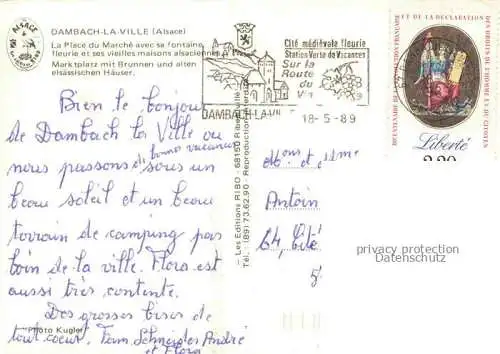 DAMBACH-LA-VILLE (Alsace)
La Place du Marché avec sa fontaine
fleurie et ses vieilles maisons alsaciennes.
Marktplatz mit Brunnen und alten
elsässischen Häuser.
ALSACE
Cité médiévale fleurie
Station Verte de Vacances
Sur la
Route
du
DAMBACH-LA-VI
18-5-89
ET DE LA DECLARATION
DES DROITS DE L'HOMME ET DU CITOYEN
BICENTENAIRE DE LA REVOLUTION FRANÇAISE
Liberté
2.20
Bien le bonjour
de Dambach la Ville ou
nous passons de bonnes vacances sous un
beau soleil et un beau
terrain de camping pas
loin de la ville. Flora est
aussi très contente.
Des grosses bises de
tout coeur. Fam Schneider André
et Flora
Photo Kugler
— Les Editions RIBO - 68150 Ribeauvillé
Tél. (89) 73.62.90 - Reproduction interdite
Mons et Mme
Antoin
64, Cité
privacy protection
Datenschutz